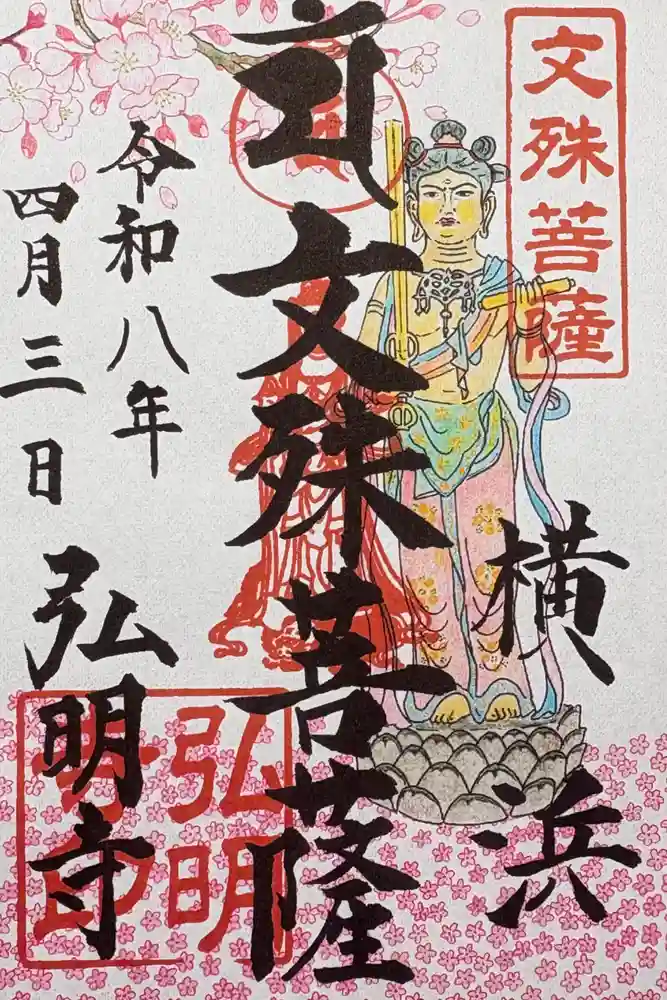 文殊菩薩
横浜
文殊菩薩
令和八年
四月三日
弘明寺
弘明
寺印